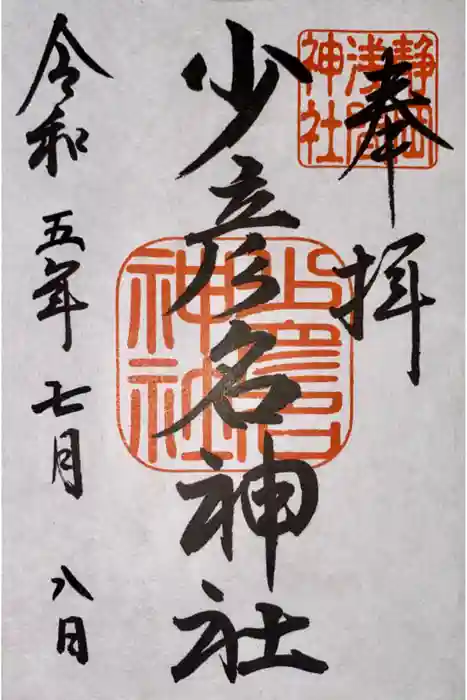 奉拝
静岡
浅間
神社
少彦名神社
令和五年七月八日